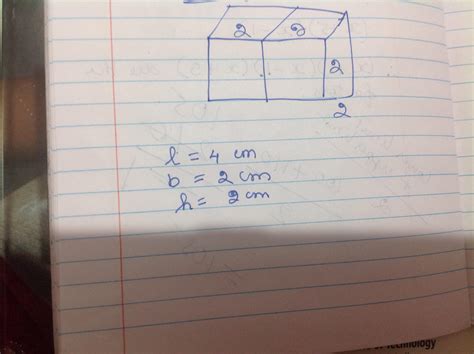 2 2
2
2
l = 4 cm
b = 2 cm
h = 2 cm
Technology